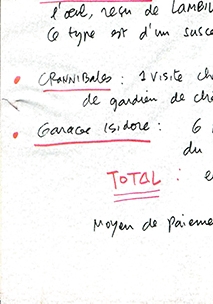 l'œil, reçu de LAMBIL
Ce type est d'un susce
• CRANNIBALES : 1 visite ch
de gardien de ch
• GARAGE ISIDORE : 6
du
TOTAL : e
Moyen de paieme